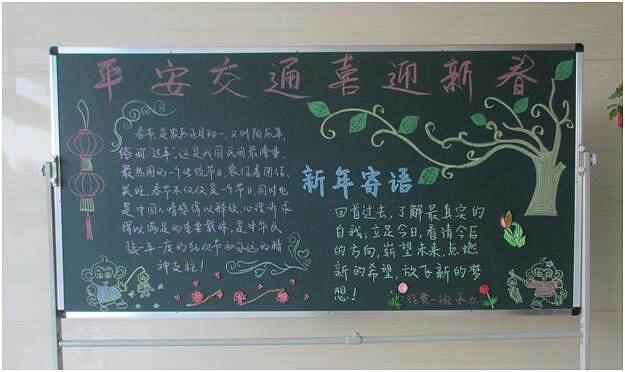 平安交通喜迎新春
春节是农历正月初一，又叫阴历年，
俗称"过年"。这是我国民间最隆重、
最热闹的一个传统节日，象征着团结、
兴旺。春节不仅仅是一个节日，同时也
是中国人情感得以释放、心理诉求
得以满足的重要载体，是中华民
族一年一度的狂欢节和永远的精
神支柱！
新年寄语
回首过去，了解最真实的
自我，立足今日，看清今后
的方向，崭望未来，点燃
新的希望，放飞新的梦
想！
一班承办